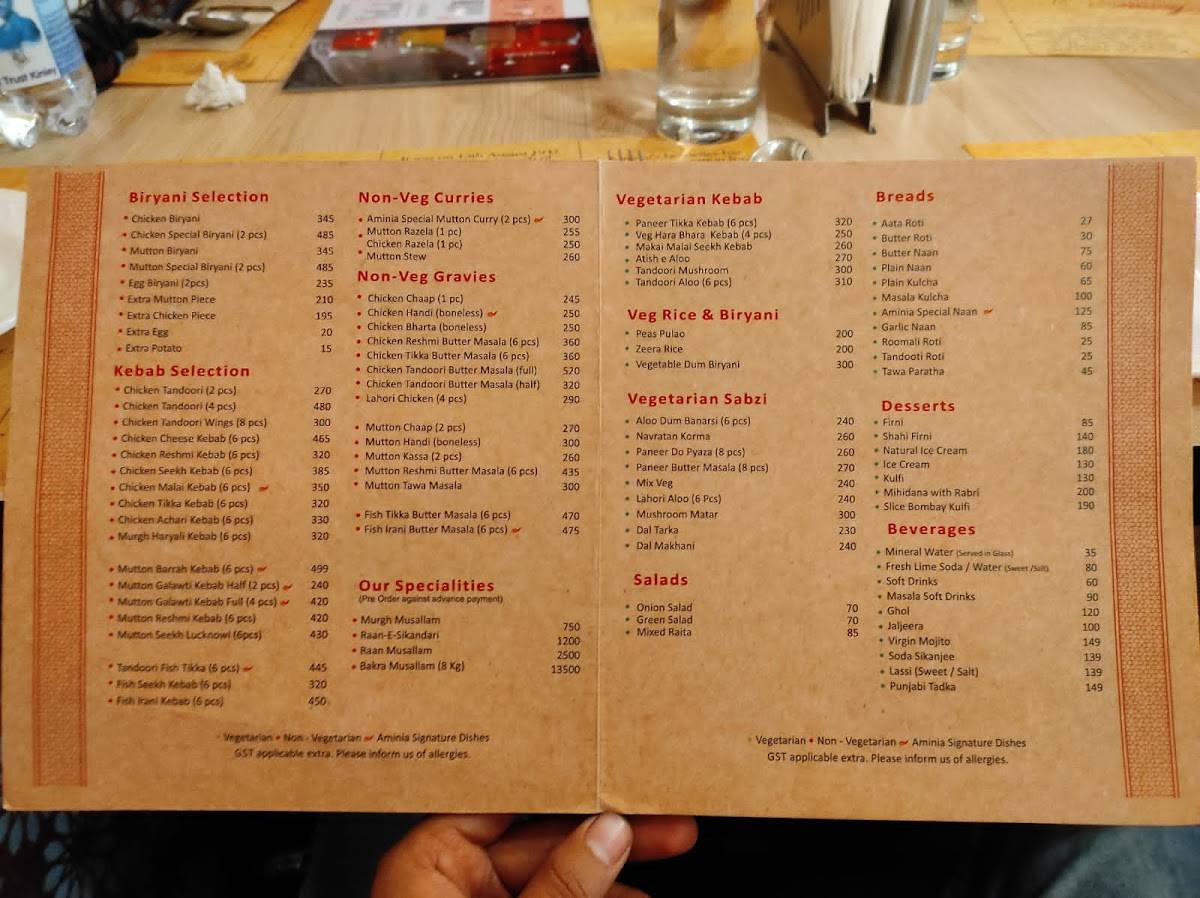 Trust Kinley
Biryani Selection
• Chicken Biryani 345
• Chicken Special Biryani (2 pcs) 485
• Mutton Biryani 345
• Mutton Special Biryani (2 pcs) 485
• Egg Biryani (2pcs) 235
• Extra Mutton Piece 210
• Extra Chicken Piece 195
• Extra Egg 20
• Extra Potato 15
Kebab Selection
• Chicken Tandoori (2 pcs) 270
• Chicken Tandoori (4 pcs) 480
• Chicken Tandoori Wings (8 pcs) 300
• Chicken Cheese Kebab (6 pcs) 465
• Chicken Reshmi Kebab (6 pcs) 320
• Chicken Seekh Kebab (6 pcs) 385
• Chicken Malai Kebab (6 pcs) 350
• Chicken Tikka Kebab (6 pcs) 320
• Chicken Achari Kebab (6 pcs) 330
• Murgh Haryali Kebab (6 pcs) 320
• Mutton Barrah Kebab (6 pcs) 499
• Mutton Galawti Kebab Half (2 pcs) 240
• Mutton Galawti Kebab Full (4 pcs) 420
• Mutton Reshmi Kebab (6 pcs) 420
• Mutton Seekh Lucknowi (6pcs) 430
• Tandoori Fish Tikka (6 pcs) 445
• Fish Seekh Kebab (6 pcs) 320
• Fish Irani Kebab (6 pcs) 450
Non-Veg Curries
• Aminia Special Mutton Curry (2 pcs) 300
• Mutton Razela (1 pc) 255
Chicken Razela (1 pc) 250
• Mutton Stew 260
Non-Veg Gravies
• Chicken Chaap (1 pc) 245
• Chicken Handi (boneless) 250
• Chicken Bharta (boneless) 250
• Chicken Reshmi Butter Masala (6 pcs) 360
• Chicken Tikka Butter Masala (6 pcs) 360
• Chicken Tandoori Butter Masala (full) 520
• Chicken Tandoori Butter Masala (half) 320
• Lahori Chicken (4 pcs) 290
• Mutton Chaap (2 pcs) 270
• Mutton Handi (boneless) 300
• Mutton Kassa (2 pcs) 260
• Mutton Reshmi Butter Masala (6 pcs) 435
• Mutton Tawa Masala 300
• Fish Tikka Butter Masala (6 pcs) 470
• Fish Irani Butter Masala (6 pcs) 475
Our Specialities
(Pre Order against advance payment)
• Murgh Musallam 750
• Raan-E-Sikandari 1200
• Raan Musallam 2500
• Bakra Musallam (8 Kg) 13500
• Vegetarian • Non - Vegetarian Aminia Signature Dishes
GST applicable extra. Please inform us of allergies.
Vegetarian Kebab
• Paneer Tikka Kebab (6 pcs) 320
• Veg Hara Bhara Kebab (4 pcs) 250
• Makai Malai Seekh Kebab 260
• Atish e Aloo 270
• Tandoori Mushroom 300
• Tandoori Aloo (6 pcs) 310
Veg Rice & Biryani
• Peas Pulao 200
• Zeera Rice 200
• Vegetable Dum Biryani 300
Vegetarian Sabzi
• Aloo Dum Banarsi (6 pcs) 240
• Navratan Korma 260
• Paneer Do Pyaza (8 pcs) 260
• Paneer Butter Masala (8 pcs) 270
• Mix Veg 240
• Lahori Aloo (6 Pcs) 240
• Mushroom Matar 300
• Dal Tarka 230
• Dal Makhani 240
Salads
• Onion Salad 70
• Green Salad 70
• Mixed Raita 85
Breads
• Aata Roti 27
• Butter Roti 30
• Butter Naan 75
• Plain Naan 60
• Plain Kulcha 65
• Masala Kulcha 100
• Aminia Special Naan 125
• Garlic Naan 85
• Roomali Roti 25
• Tandooti Roti 25
• Tawa Paratha 45
Desserts
• Firni 85
• Shahi Firni 140
• Natural Ice Cream 180
• Ice Cream 130
• Kulfi 130
• Mihidana with Rabri 200
• Slice Bombay Kulfi 190
Beverages
• Mineral Water (Served in Glass) 35
• Fresh Lime Soda / Water (Sweet /Salt) 80
• Soft Drinks 60
• Masala Soft Drinks 90
• Ghol 120
• Jaljeera 100
• Virgin Mojito 149
• Soda Sikanjee 139
• Lassi (Sweet / Salt) 139
• Punjabi Tadka 149
• Vegetarian • Non - Vegetarian Aminia Signature Dishes
GST applicable extra. Please inform us of allergies.